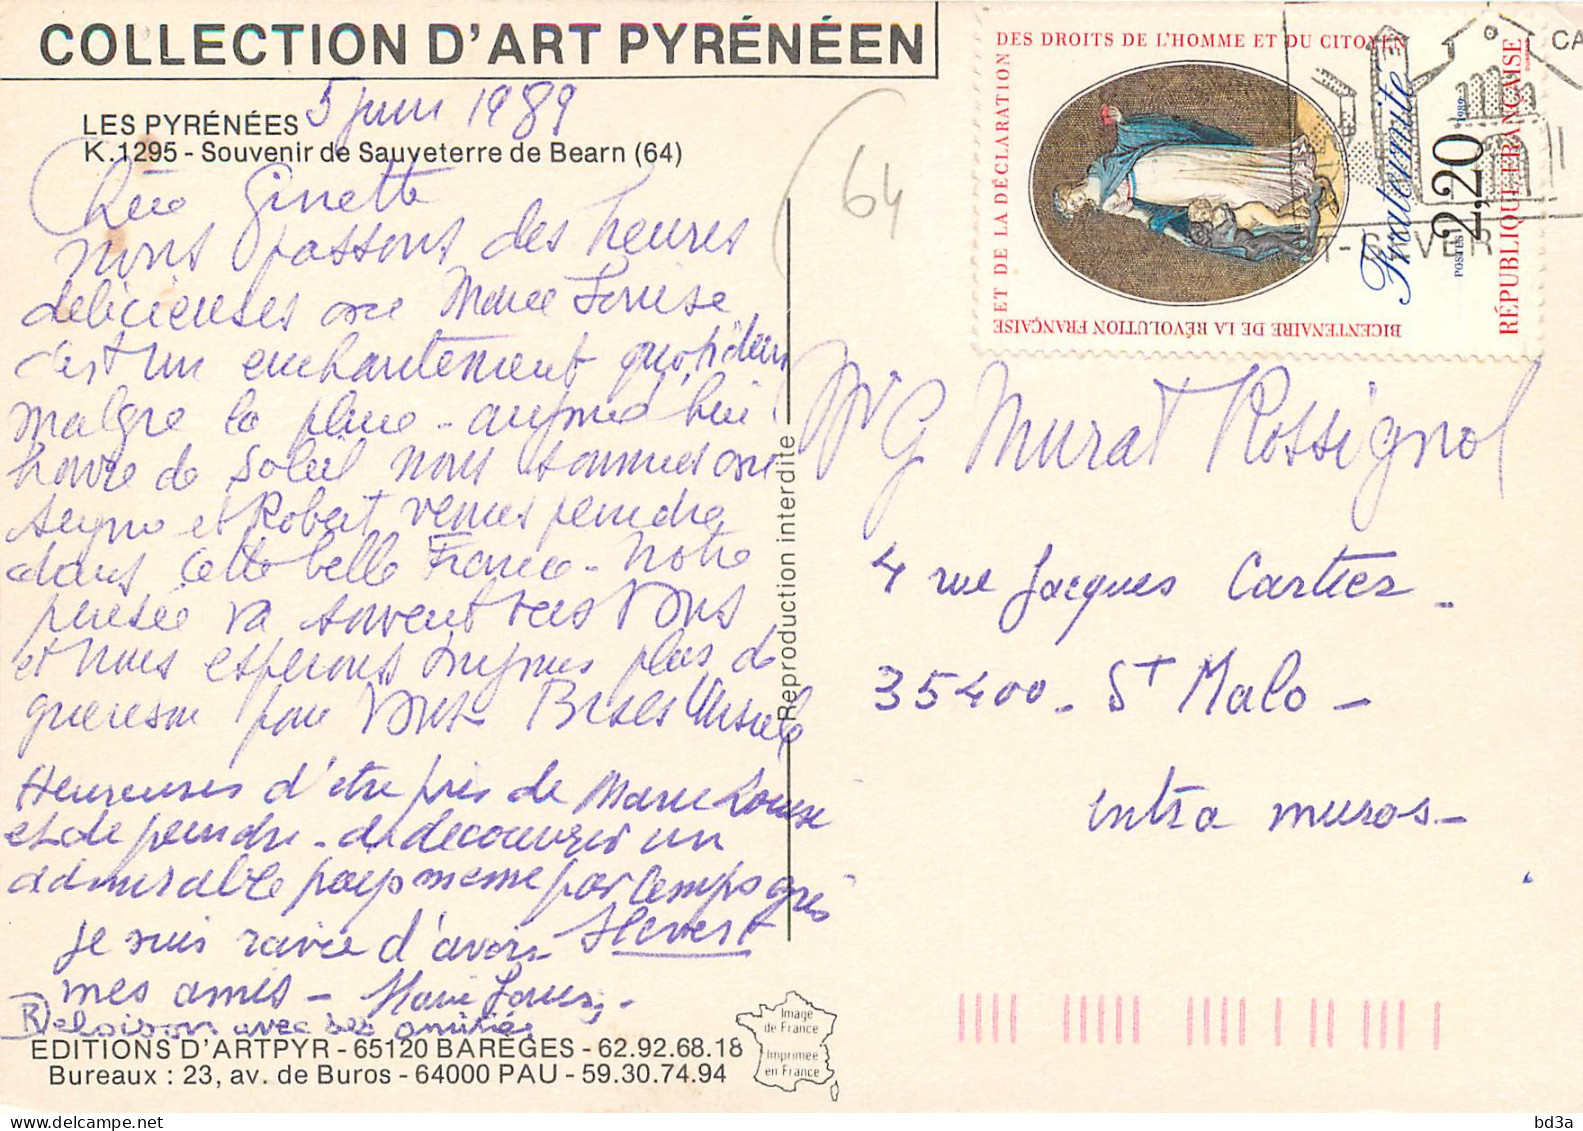 COLLECTION D'ART PYRÉNÉEN
LES PYRÉNÉES 5 juin 1989
K.1295 - Souvenir de Sauveterre de Bearn (64)
Chère Ginette
nous passons des heures
délicieuses Marie Louise
c'est un enchantement quotidien
malgré la pluie - aujourd'hui
de soleil nous sommes
et Robert venus peindre
dans cette belle France - Notre
pensée va souvent vers Vous
et nous espérons toujours plus de
guérison pour Vous Bises Ursule
Heureuses d'être près de Marie Louise
et de peindre - de découvrir un
admirable pays meme par temps gris
je suis ravie d'avoir
mes amis - Marie Louise -
avec ses amitiés
EDITIONS D'ARTPYR - 65120 BARÈGES - 62.92.68.18
Bureaux : 23, av. de Buros - 64000 PAU - 59.30.74.94
Image
de France
Imprimée
en France
Reproduction interdite
64
BICENTENAIRE DE LA RÉVOLUTION FRANÇAISE
ET DE LA DÉCLARATION
DES DROITS DE L'HOMME ET DU CITOYEN
Fraternité
POSTES 2,20 1989
RÉPUBLIQUE FRANÇAISE
CA
G Murat Rossignol
4 rue Jacques Cartier -
35400 - St Malo -
intra muros -
bd3a